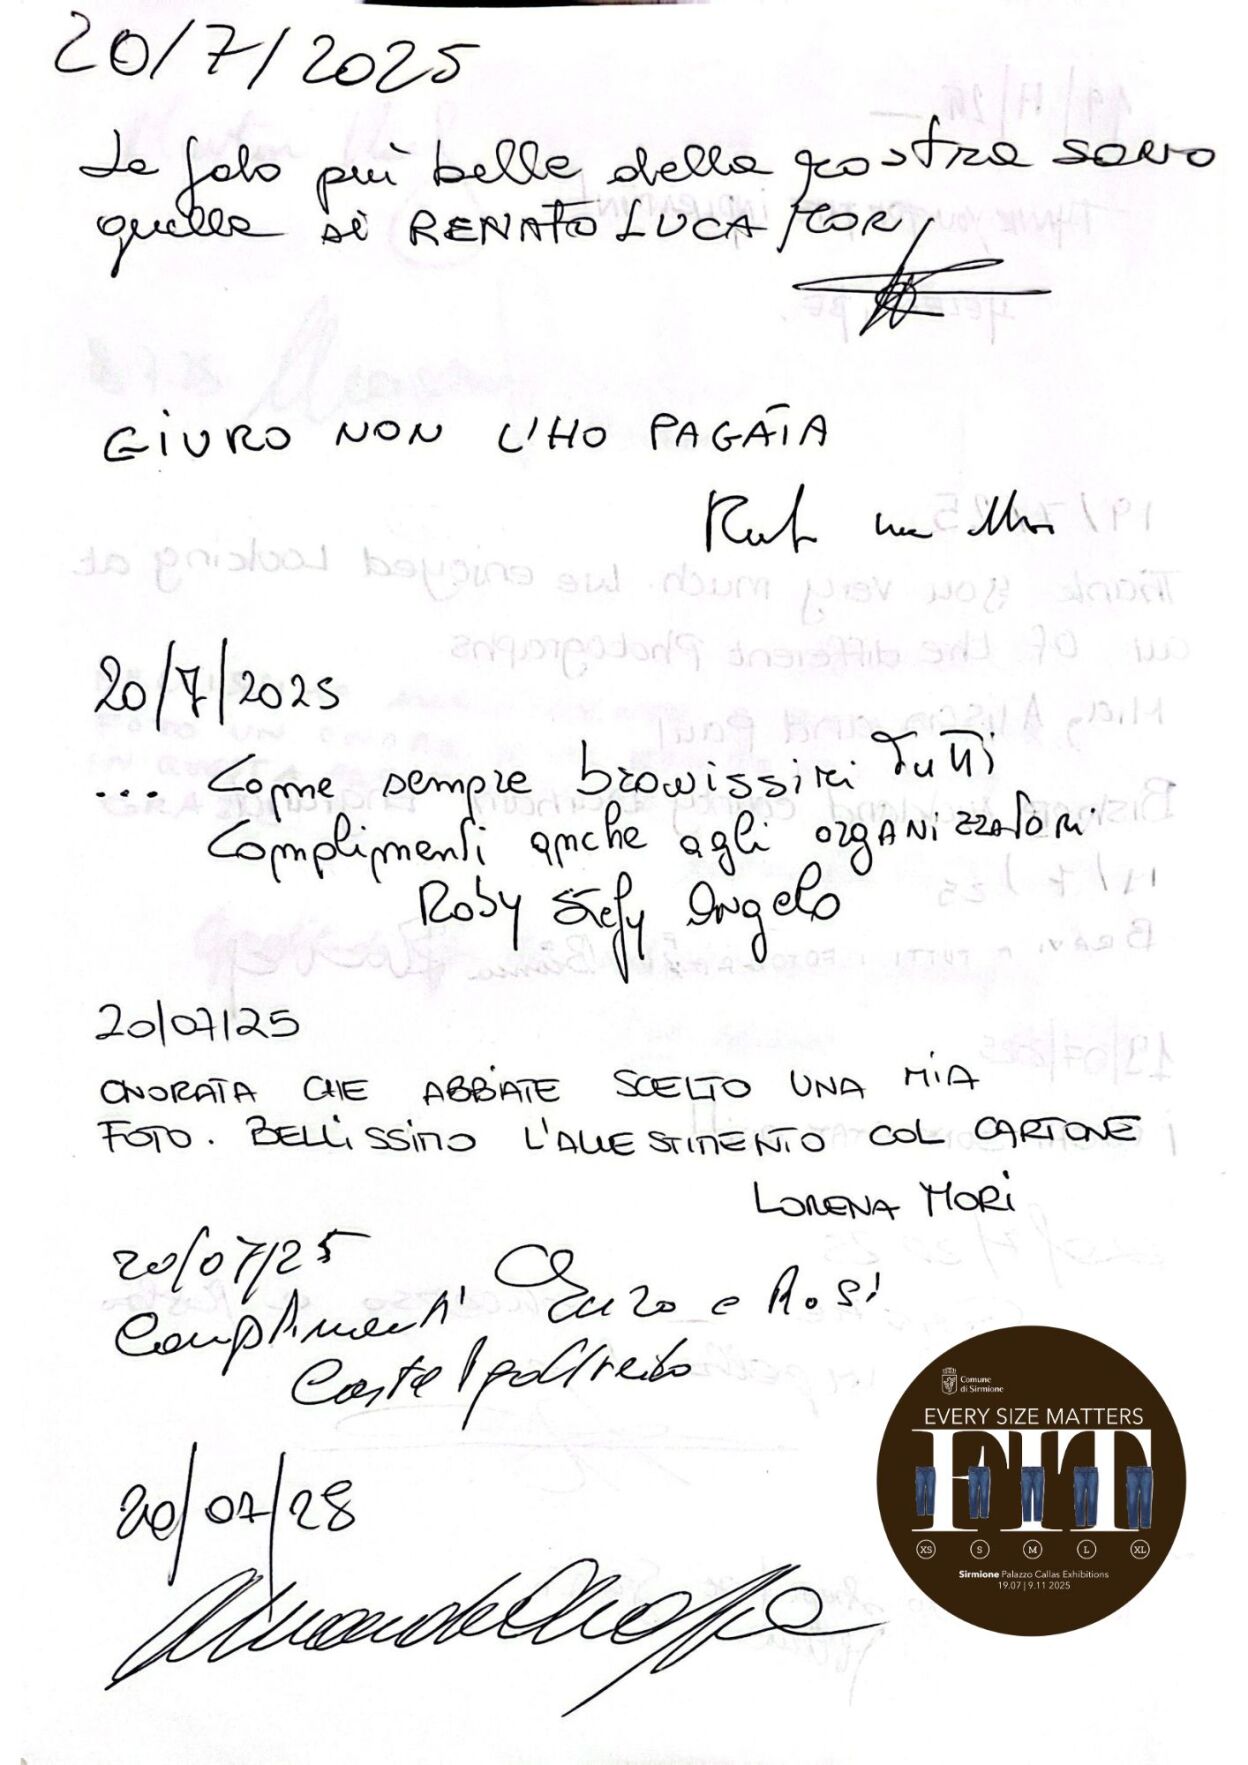 20/7/2025
Le foto più belle della mostra sono
quelle di RENATO LUCA
GIURO NON L'HO PAGATA
20/7/2025
... Come sempre bravissimi Tutti
Complimenti anche agli organizzatori
Roby Stefy Angelo
20/07/25
ONORATA CHE ABBIATE SCELTO UNA MIA
FOTO. BELLISSIMO L'ALLESTIMENTO COL CARTONE
LORENA MORI
20/07/25
Complimenti Enzo e Rosi
Castelgoffredo
20/07/28
Comune
di Sirmione
EVERY SIZE MATTERS
FIT
XS S M L XL
Sirmione Palazzo Callas Exhibitions
19.07 | 9.11 2025